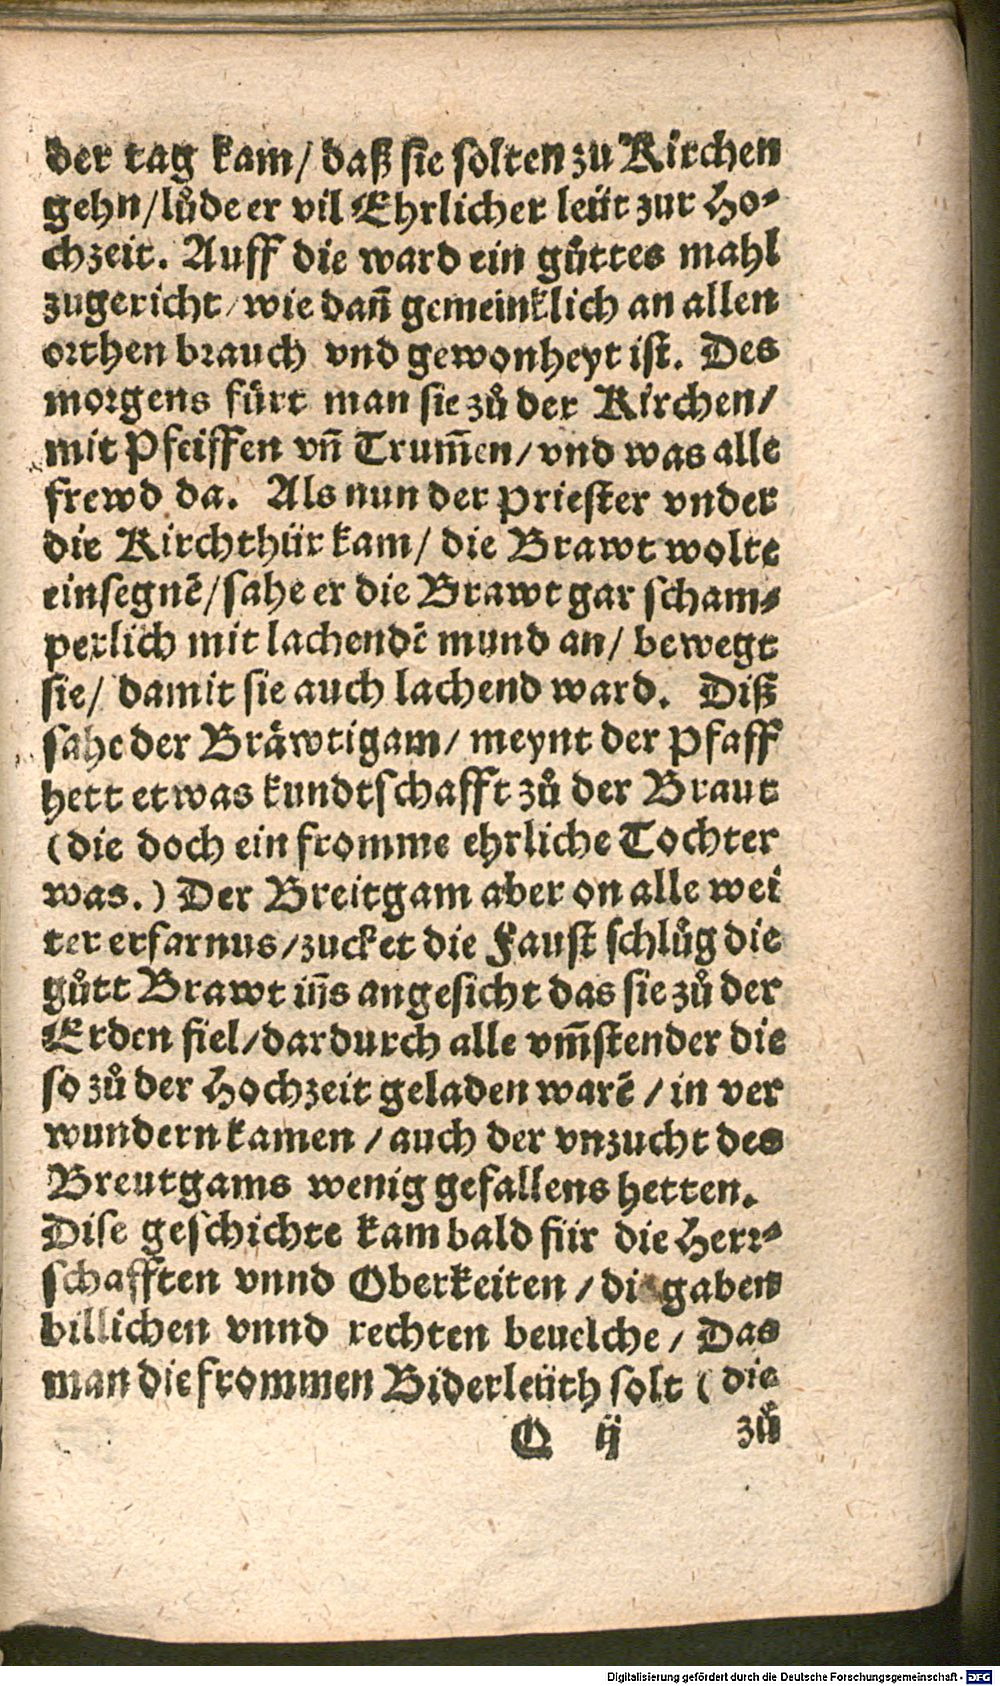 der tag kam/ daß sie solten zu Kirchen
gehn/luͦde er vil Ehrlicher leüt zur Ho⸗
chzeit. Auff die ward ein guͤttes mahl
zugericht/wie dañ gemeinklich an allen
orthen brauch vnd gewonheyt ist. Des
morgens fuͤrt man sie zuͦ der Kirchen/
mit Pfeiffen vñ Trum̃en/vnd was alle
frewd da. Als nun der priester vnder
die Kirchthür kam/ die Brawt wolte
einsegnẽ/sahe er die Brawt gar scham⸗
perlich mit lachendẽ mund an/ bewegt
sie/ damit sie auch lachend ward. Diß
sahe der Braͤwtigam/ meynt der Pfaff
hett etwas kundtschafft zuͦ der Braut
(die doch ein fromme ehrliche Tochter
was.) Der Breitgam aber on alle wei
ter erfarnus/zucket die Faust schluͦg die
guͦtt Brawt iñs angesicht das sie zuͦ der
Erden fiel/dardurch alle vm̃stender die
so zuͦ der Hochzeit geladen warẽ/in ver
wundern kamen/auch der vnzucht des
Breutgams wenig gefallens hetten.
Dise geschichte kam bald für die Herr⸗
schafften vnnd Oberkeiten/die gaben
billichen vnnd rechten beuelche/ Das
man die frommen Biderleüth solt (die
Q ij zuͦ
Digitalisierung gefördert durch die Deutsche Forschungsgemeinschaft - DFG